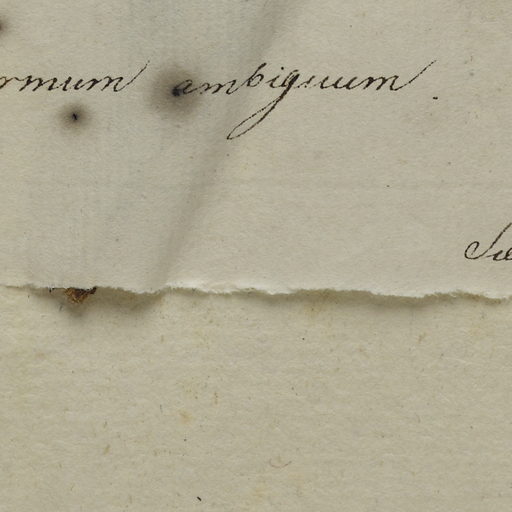 rmum ambiguum.